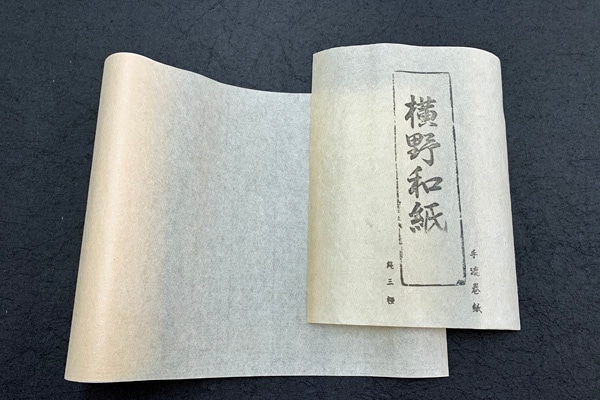 手漉巻紙
横野和紙
純三椏